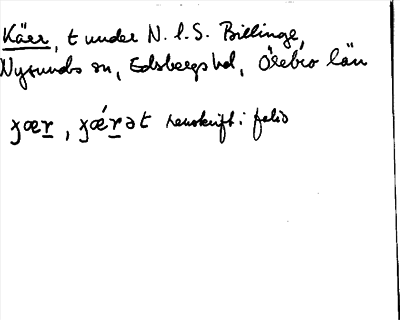 Käer, t under N. l. S. Billinge,
Nysunds sn, Edsbergs hd, Örebro län
ɟær, ɟǽrət renskrift i folio